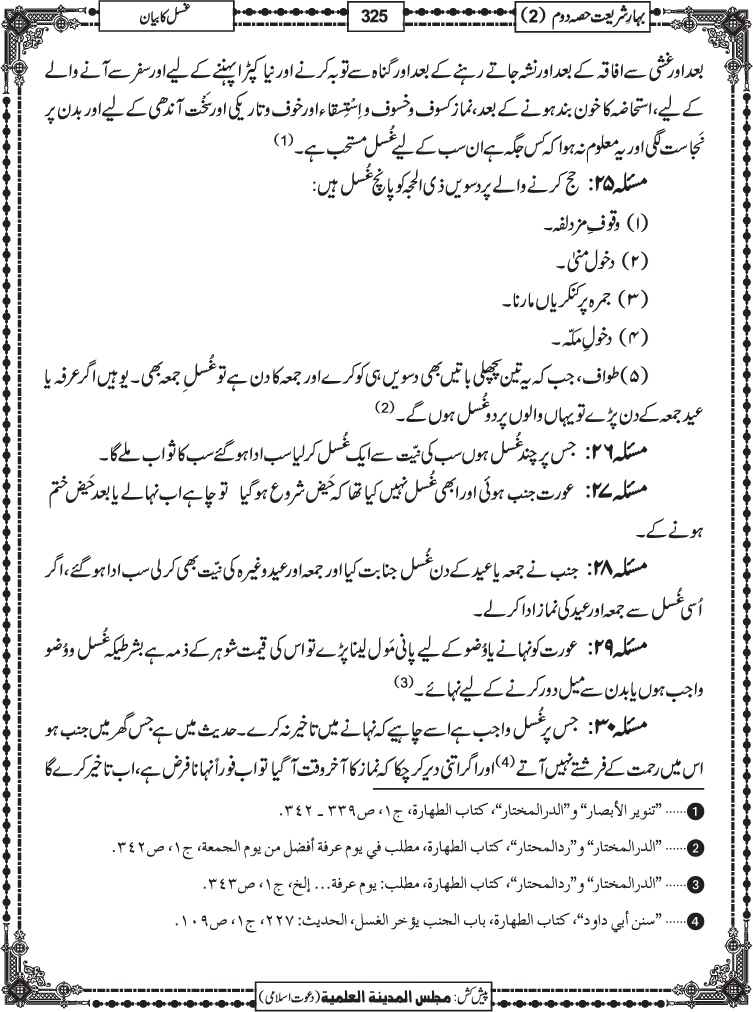 بہارِ شریعت حصہ دوم (2)
325
غسل کا بیان
بعد اور غشی سے افاقہ کے بعد اور نشہ جاتے رہنے کے بعد اور گناہ سے توبہ کرنے اور نیا کپڑا پہننے کے لیے اور سفر سے آنے والے
کے لیے، استحاضہ کا خون بند ہونے کے بعد، نماز کسوف و خسوف و اِسْتِسقاء اور خوف و تاریکی اور سَخْت آندھی کے لیے اور بدن پر
نَجاست لگی اور یہ معلوم نہ ہوا کہ کس جگہ ہے ان سب کے لیے غُسل مستحب ہے۔ (1)
مسئلہ ۲۵: حج کرنے والے پر دسویں ذی الحجہ کو پانچ غُسل ہیں:
(۱) وقوفِ مزدلفہ۔
(۲) دخول منیٰ۔
(۳) جمرہ پر کنکریاں مارنا۔
(۴) دخولِ مکّہ۔
(۵) طواف، جب کہ یہ تین پچھلی باتیں بھی دسویں ہی کو کرے اور جمعہ کا دن ہے تو غُسلِ جمعہ بھی۔ یوہیں اگر عرفہ یا
عید جمعہ کے دن پڑے تو یہاں والوں پر دو غُسل ہوں گے۔ (2)
مسئلہ ۲۶: جس پر چند غُسل ہوں سب کی نیّت سے ایک غُسل کر لیا سب ادا ہو گئے سب کا ثواب ملے گا۔
مسئلہ ۲۷: عورت جنب ہوئی اور ابھی غُسل نہیں کیا تھا کہ حَیض شروع ہو گیا تو چاہے اب نہا لے یا بعد حَیض ختم
ہونے کے۔
مسئلہ ۲۸: جنب نے جمعہ یا عید کے دن غُسل جنابت کیا اور جمعہ اور عید وغیرہ کی نیّت بھی کر لی سب ادا ہو گئے، اگر
اُسی غُسل سے جمعہ اور عید کی نماز ادا کر لے۔
مسئلہ ۲۹: عورت کو نہانے یا وُضو کے لیے پانی مَول لینا پڑے تو اس کی قیمت شوہر کے ذمہ ہے بشرطیکہ غُسل و وُضو
واجب ہوں یا بدن سے میل دور کرنے کے لیے نہائے۔ (3)
مسئلہ ۳۰: جس پر غُسل واجب ہے اسے چاہیے کہ نہانے میں تاخیر نہ کرے۔ حدیث میں ہے جس گھر میں جنب ہو
اس میں رحمت کے فرشتے نہیں آتے (4) اور اگر اتنی دیر کر چکا کہ نماز کا آخر وقت آ گیا تو اب فوراً نہانا فرض ہے، اب تاخیر کرے گا
1 ...... ”تنویر الأبصار“ و”الدرالمختار“، کتاب الطھارۃ، ج۱، ص۳۳۹ ـ ۳۴۲.
2 ...... ”الدرالمختار“ و”ردالمحتار“، کتاب الطھارۃ، مطلب في یوم عرفۃ أفضل من یوم الجمعۃ، ج۱، ص۳۴۲.
3 ...... ”الدرالمختار“ و”ردالمحتار“، کتاب الطھارۃ، مطلب: یوم عرفۃ... إلخ، ج۱، ص۳۴۳.
4 ...... ”سنن أبي داود“، کتاب الطھارۃ، باب الجنب یؤخر الغسل، الحدیث: ۲۲۷، ج۱، ص۱۰۹.
پیش کش: مجلس المدینۃ العلمیۃ (دعوت اسلامی)